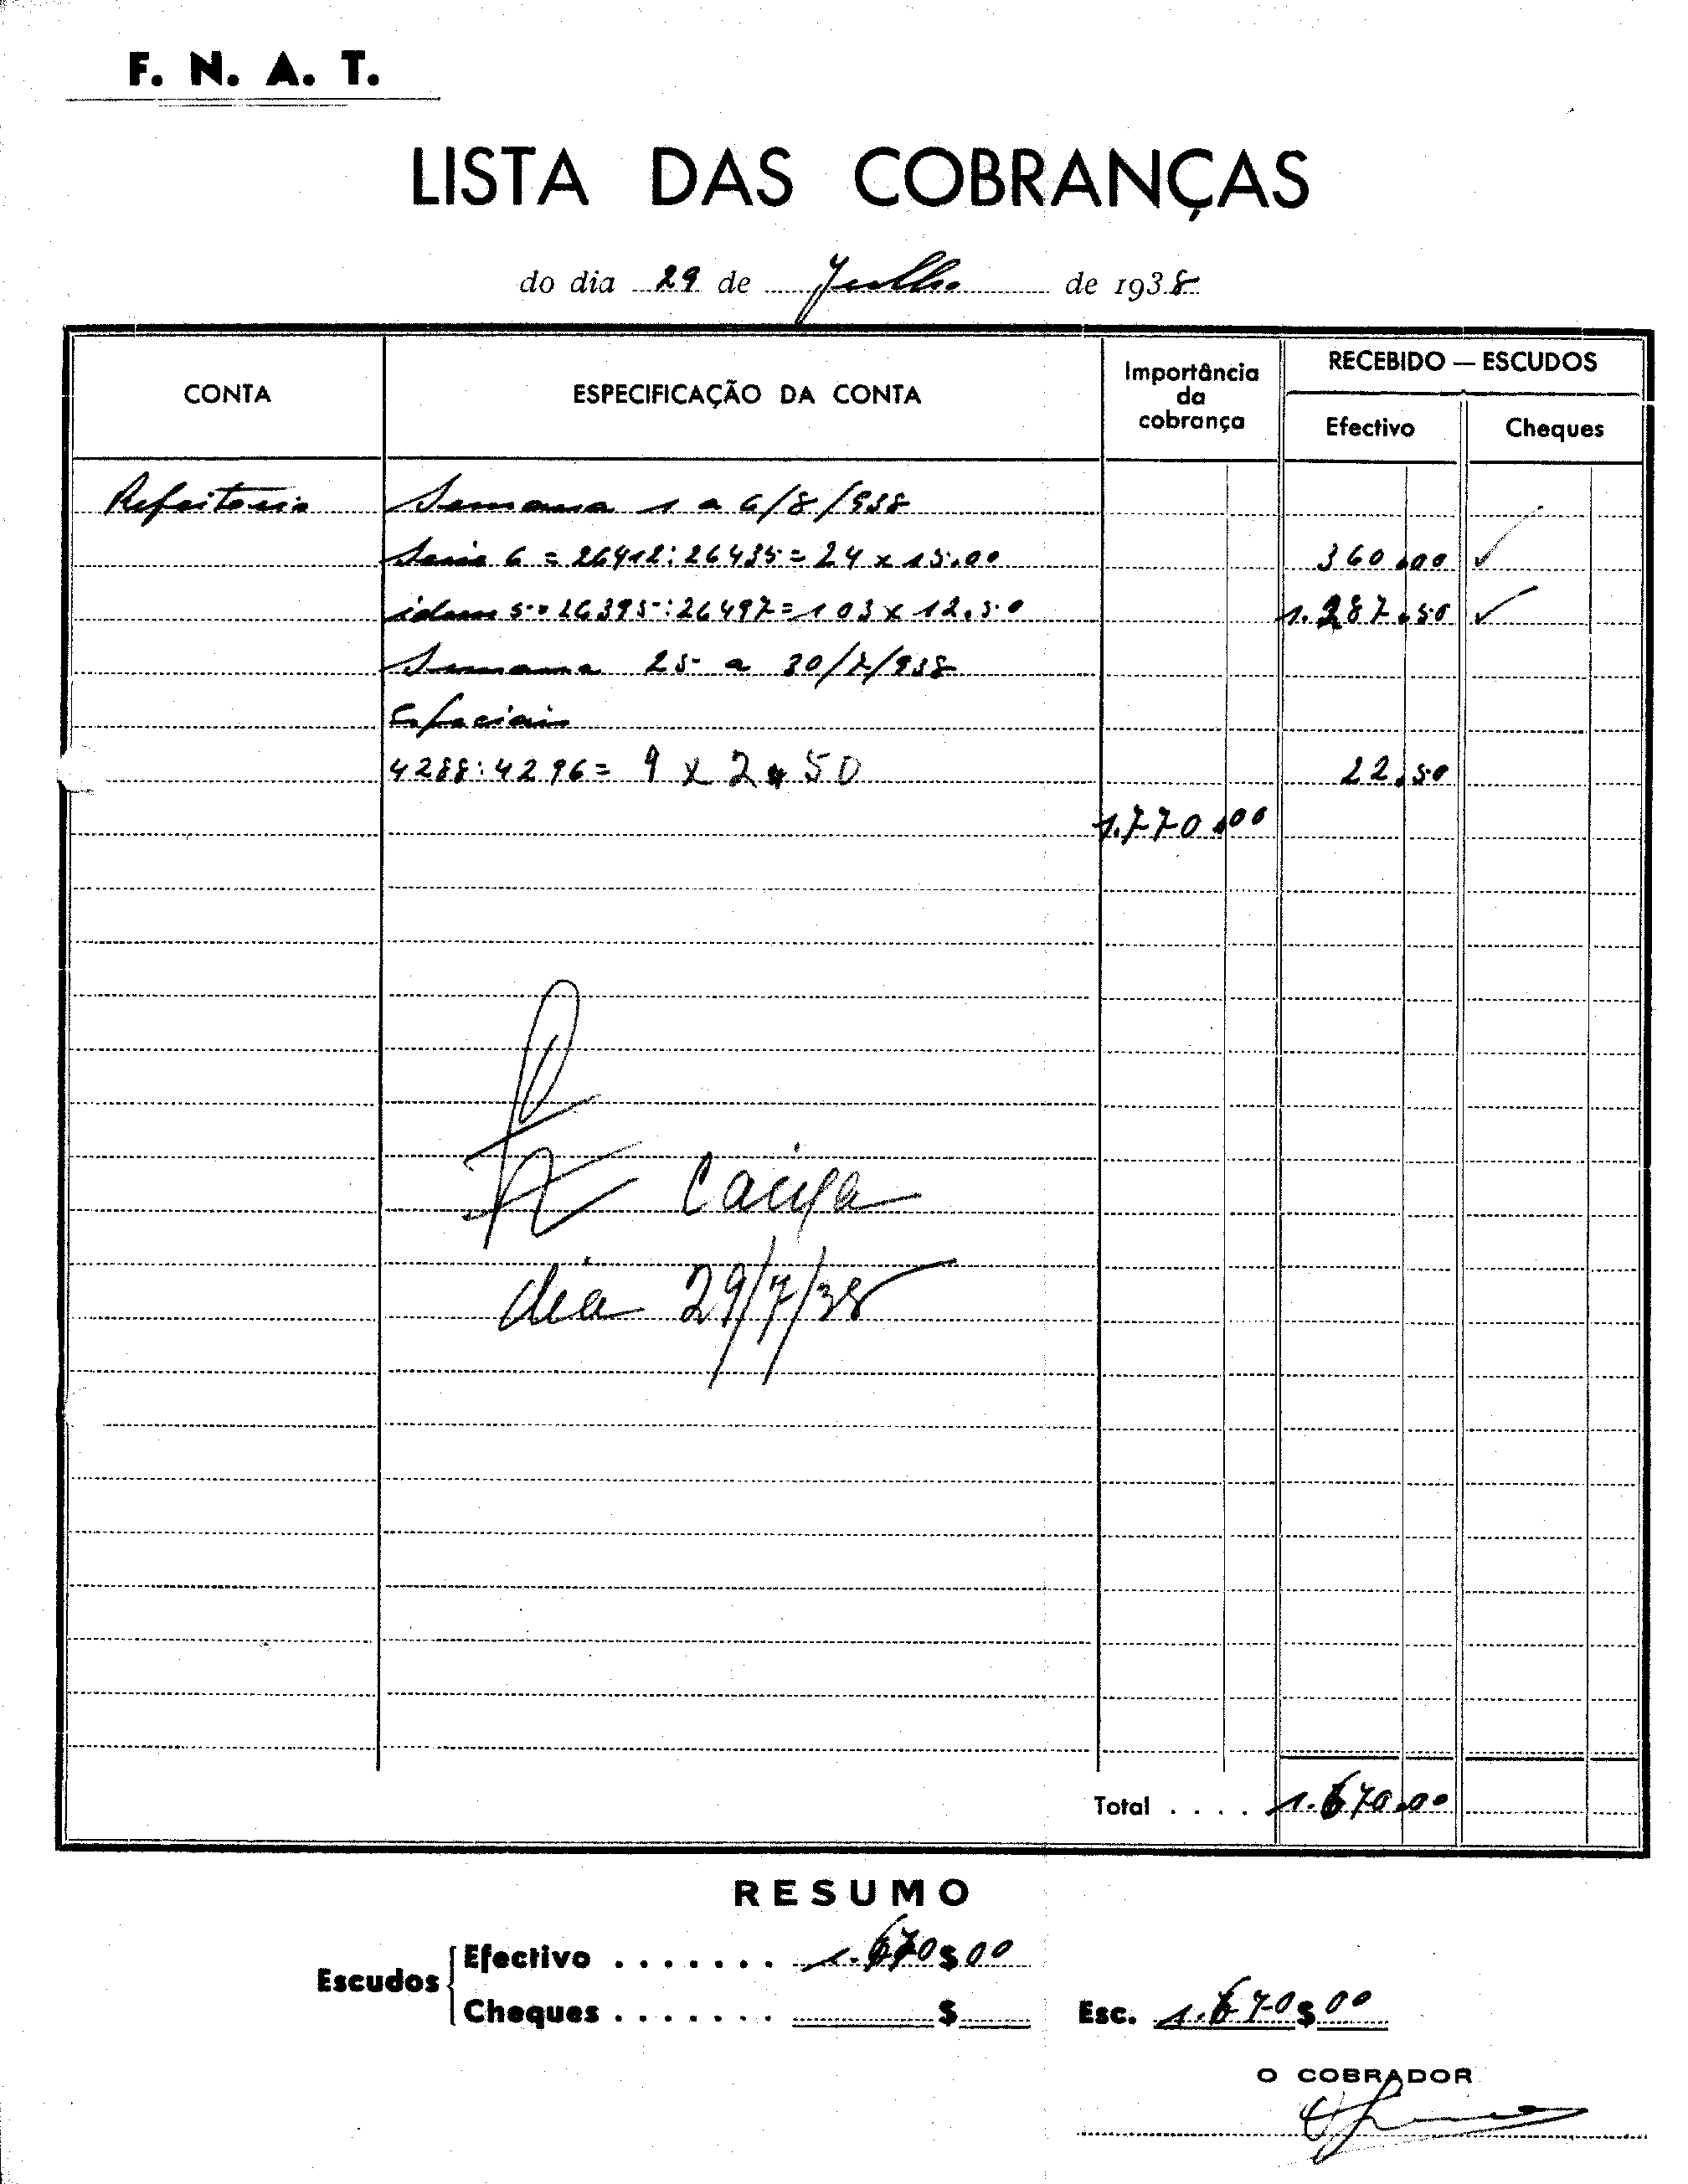 F. N. A. T.
LISTA DAS COBRANÇAS
do dia 29 de Julho de 1938
CONTA ESPECIFICAÇÃO DA CONTA Importância da cobrança RECEBIDO — ESCUDOS
Efectivo Cheques
Refeitorio Semana 1 a 6/8/938
Serie 6 = 26412:26435 = 24 x 15.00 360.00 ✓
idem 5 = 26395:26497 = 103 x 12.50 1.287.50 ✓
Semana 25 a 30/7/938
Especiais
4288:4296 = 9 x 2.50 22.50
1.770.00
Caixa
dia 29/7/38
Total . . . . 1.670.00
RESUMO
Escudos Efectivo . . . . . . . 1.670$00
Cheques . . . . . . . $ Esc. 1.670$00
O COBRADOR